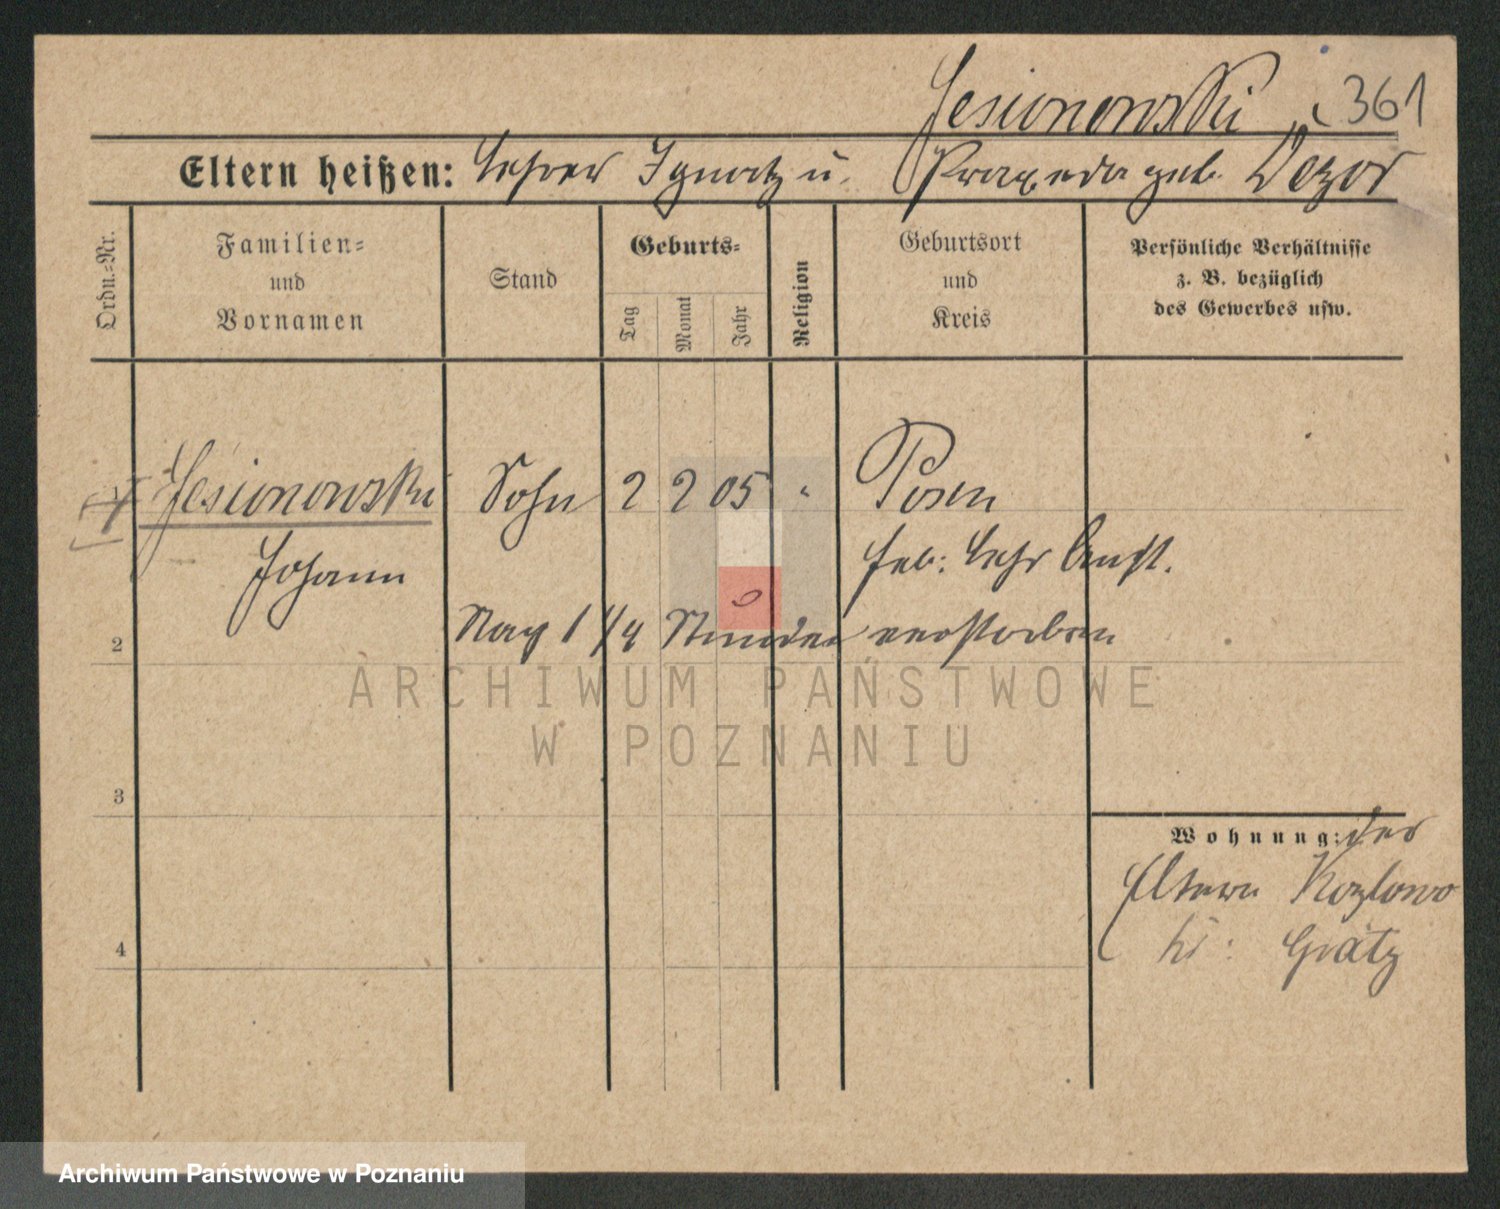 Jesionowski 361
Eltern heißen: Lehrer Ignatz u. Praxeda geb. Dezor
Ordn.=Nr.
Familien=
und
Vornamen
Stand
Geburts=
Tag
Monat
Jahr
Religion
Geburtsort
und
Kreis
Persönliche Verhältnisse
z. B. bezüglich
des Gewerbes usw.
Jesionowski Sohn 2 2 05 Posen
Johann feb: Lehr Anst.
2 Nach 1 1/4 Stunden verstorben
ARCHIWUM PAŃSTWOWE
W POZNANIU
3
Wohnung: der
Eltern Kozlowo
4 Kr: Grätz
Archiwum Państwowe w Poznaniu